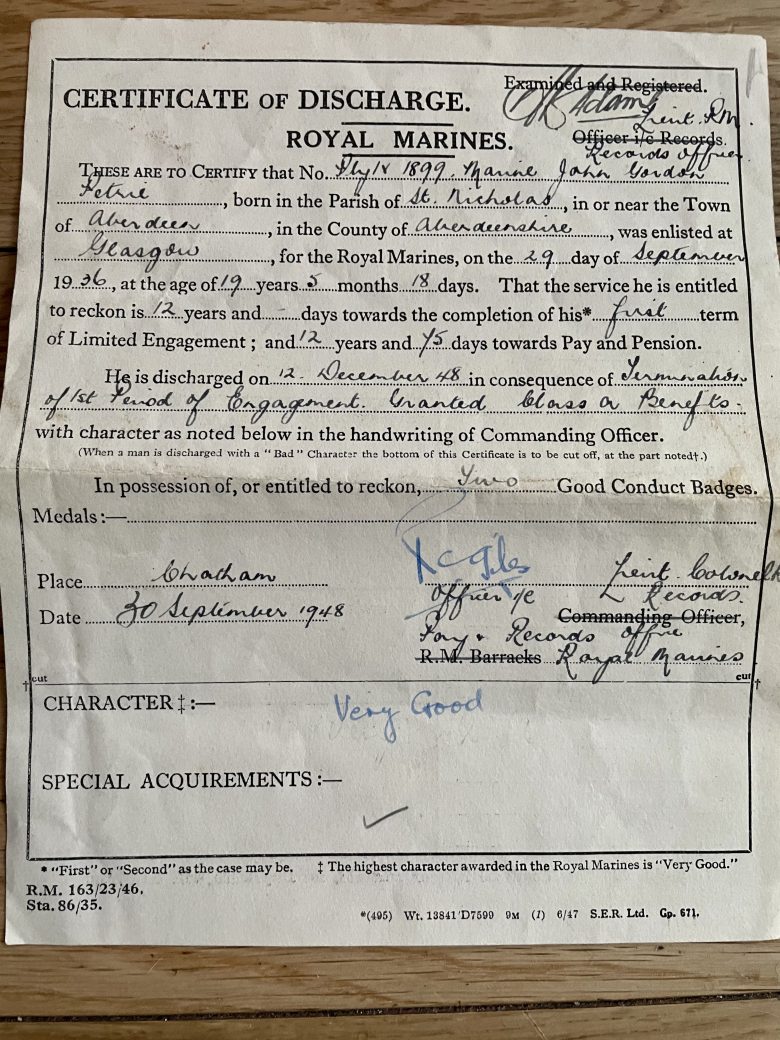 Examined and Registered.
CERTIFICATE OF DISCHARGE.
Adams
Lieut. R.M.
Officer i/c Records.
ROYAL MARINES.
Records Officer
THESE ARE TO CERTIFY that No. Ply/x 1899. Marine John Gordon
Petrie, born in the Parish of St. Nicholas, in or near the Town
of Aberdeen, in the County of Aberdeenshire, was enlisted at
Glasgow, for the Royal Marines, on the 29 day of September
1936, at the age of 19 years 5 months 18 days. That the service he is entitled
to reckon is 12 years and - days towards the completion of his* first term
of Limited Engagement; and 12 years and 75 days towards Pay and Pension.
He is discharged on 12. December 48 in consequence of Termination
of 1st Period of Engagement. Granted Class A Benefits.
with character as noted below in the handwriting of Commanding Officer.
(When a man is discharged with a "Bad" Character the bottom of this Certificate is to be cut off, at the part noted†.)
In possession of, or entitled to reckon, Two Good Conduct Badges.
Medals:—
Place Chatham Lieut. Colonel
Officer i/c Records.
Date 30 September 1948 Commanding Officer,
Pay & Records Office
R.M. Barracks Royal Marines
†cut cut†
CHARACTER‡:— Very Good
SPECIAL ACQUIREMENTS:—
* "First" or "Second" as the case may be. ‡ The highest character awarded in the Royal Marines is "Very Good."
R.M. 163/23/46.
Sta. 86/35.
*(495) Wt. 13841/D7599 9M (1) 6/47 S.E.R. Ltd. Gp. 671.